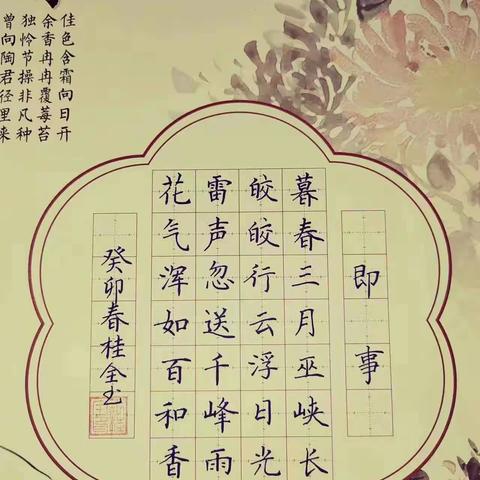 佳色含霜向日开
余香冉冉覆莓苔
独怜节操非凡种
曾向陶君径里来
即事
暮春三月巫峡长
皎皎行云浮日光
雷声忽送千峰雨
花气浑如百和香
癸卯春桂全